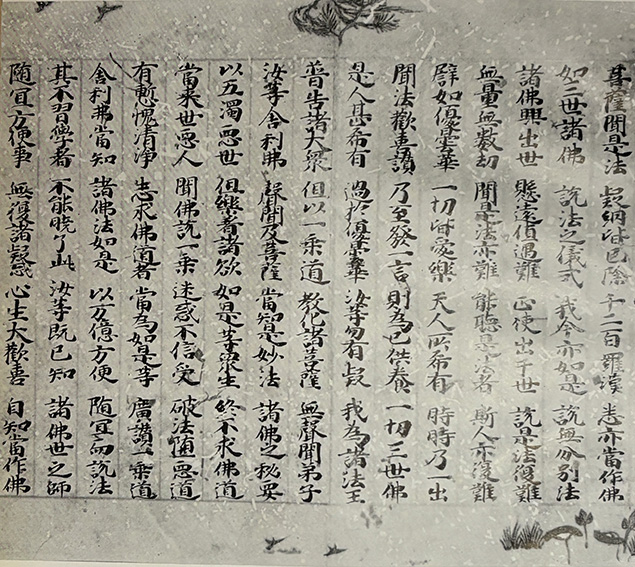 菩薩聞是法 疑網皆已除 千二百羅漢 悉亦當作佛
如三世諸佛 說法之儀式 我今亦如是 說無分別法
諸佛興出世 懸遠值遇難 正使出于世 說是法復難
無量無數劫 聞是法亦難 能聽是法者 斯人亦復難
譬如優曇華 一切皆愛樂 天人所希有 時時乃一出
聞法歡喜讚 乃至發一言 則為已供養 一切三世佛
是人甚希有 過於優曇華 汝等勿有疑 我為諸法王
普告諸大衆 但以一乘道 教化諸菩薩 無聲聞弟子
汝等舍利弗 聲聞及菩薩 當知是妙法 諸佛之秘要
以五濁惡世 但樂著諸欲 如是等衆生 終不求佛道
當來世惡人 聞佛說一乘 迷惑不信受 破法墮惡道
有慙愧清淨 志求佛道者 當為如是等 廣讚一乘道
舍利弗當知 諸佛法如是 以万億方便 随宜而說法
其不習學者 不能曉了此 汝等既已知 諸佛世之師
随宜方便事 無復諸疑惑 心生大歡喜 自知當作佛